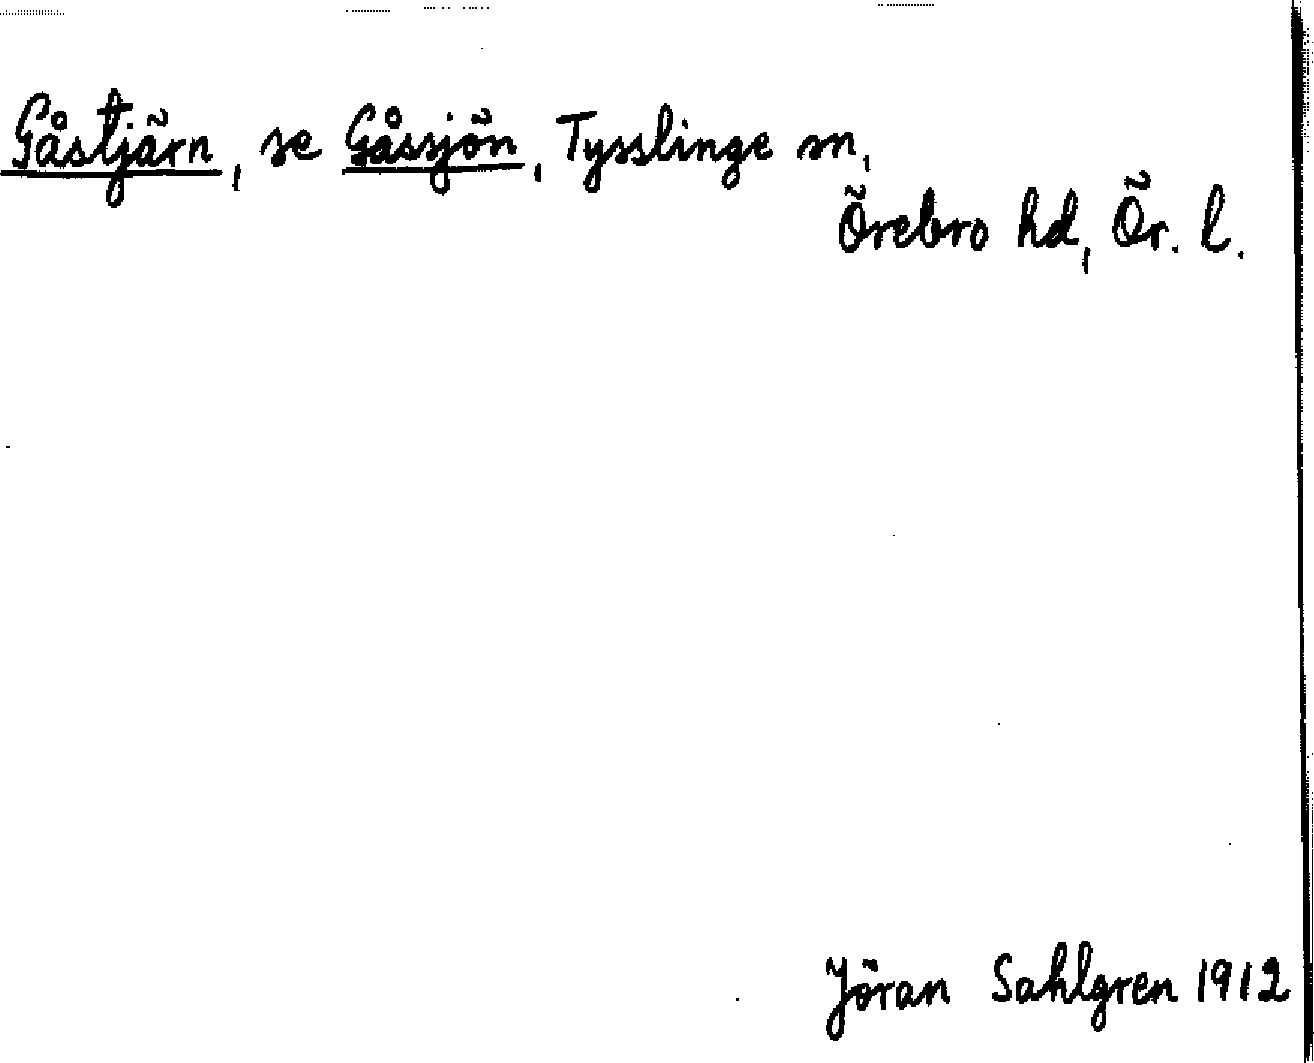 Gåstjärn, se Gåssjön, Tysslinge sn,
Örebro hd, Ör. l.
Jöran Sahlgren 1912